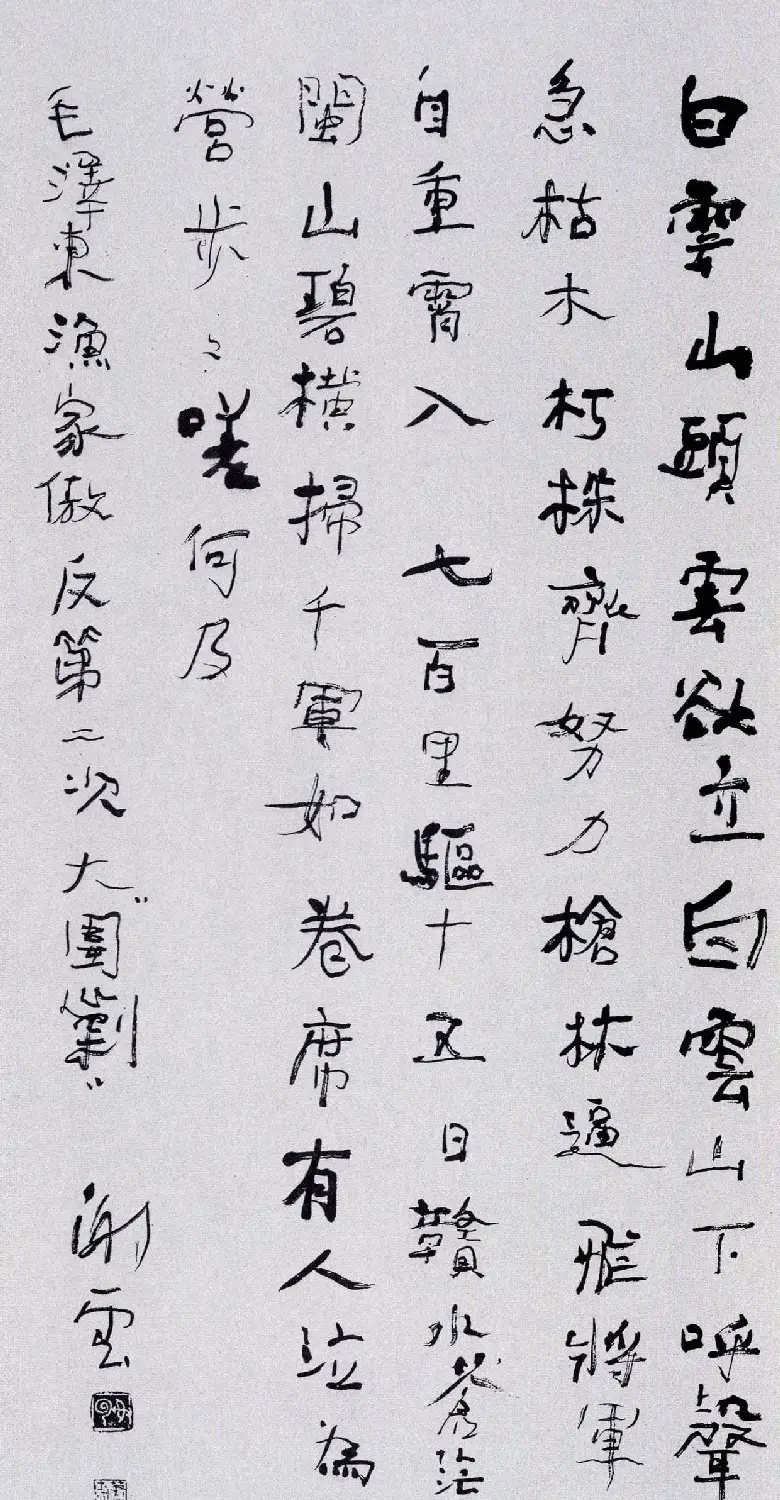 白雲山頭雲欲立白雲山下呼聲
急枯木朽株齊努力槍林逼飛將軍
自重霄入七百里驅十五日贛水蒼茫
閩山碧橫掃千軍如卷席有人泣為
營步〻嗟何及
毛澤東漁家傲反第二次大"圍剿"
謝雲